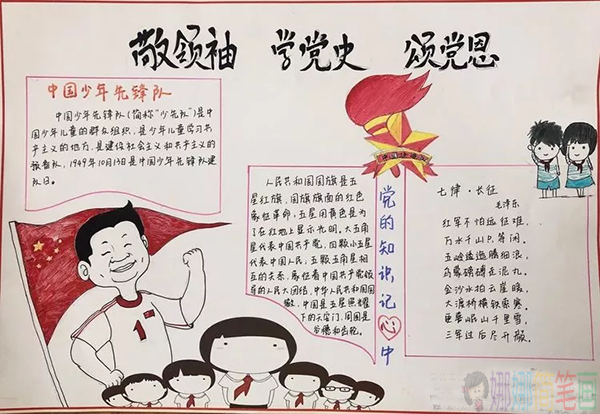 敬领袖 学党史 颂党恩
中国少年先锋队
中国少年先锋队(简称"少先队")是中
国少年儿童的群众组织,是少年儿童学习共
产主义的地方,是建设社会主义和共产主义的
预备队,1949年10月13日是中国少年先锋队建
队日。
人民共和国国旗是五
星红旗,国旗旗面的红色
象征革命,五星用黄色是为
了在红地上显示光明,大五角
星代表中国共产党,四颗小五星
代表中国人民;五颗五角星相
互的关系,象征着中国共产党领
导的人民大团结,中华人民共和国国
徽,中国是五星照耀
下的天安门,周围是
谷穗和齿轮。
党的知识记心中
七律·长征
毛泽东
红军不怕远征难,
万水千山只等闲。
五岭逶迤腾细浪,
乌蒙磅礴走泥丸。
金沙水拍云崖暖,
大渡桥横铁索寒。
更喜岷山千里雪,
三军过后尽开颜。
1
娜娜笔画